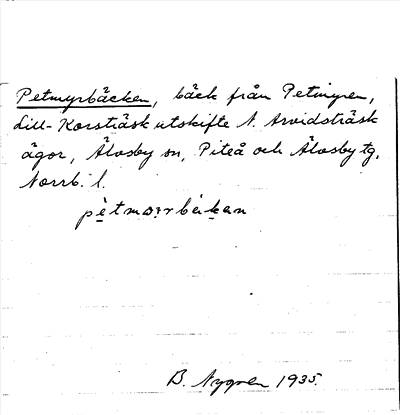 Petmyrbäcken, bäck från Petmyren,
Lill-Korsträsk utskifte N. Arvidsträsk
ägor, Älvsby sn, Piteå och Älvsby tg.
Norrb. l.
pètmɷrbèkan
B. Nygren 1935.